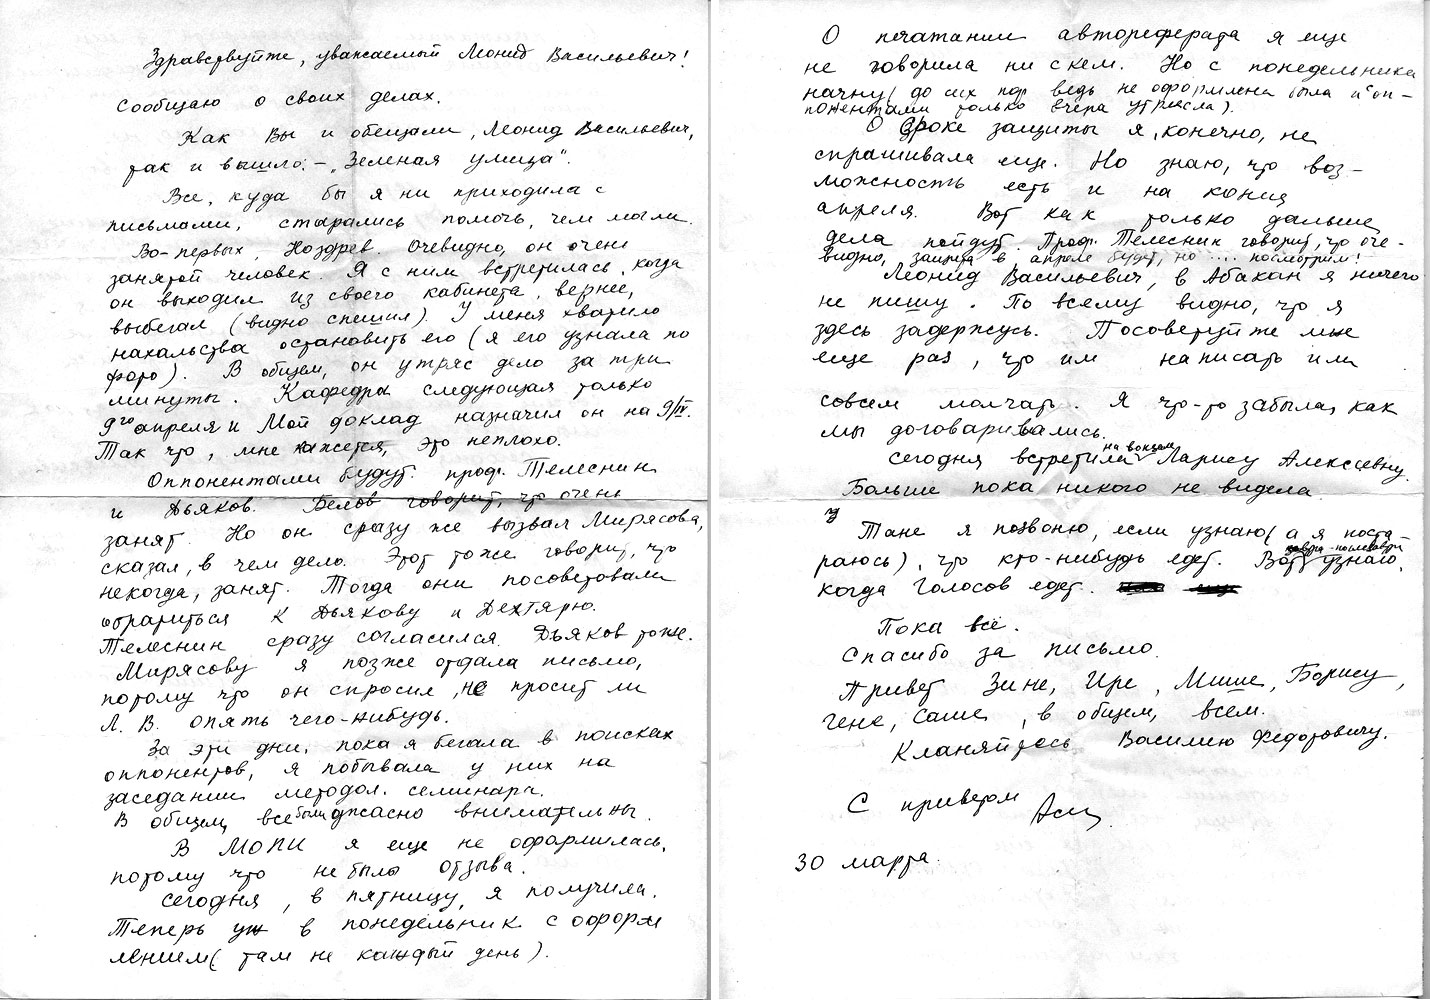 Здравствуйте, уважаемый Леонид Васильевич!
Сообщаю о своих делах.
Как Вы и обещали, Леонид Васильевич,
так и вышло: – „Зеленая улица“.
Все, куда бы я ни приходила с
письмами, старались помочь, чем могли.
Во-первых, Ноздрев. Очевидно, он очень
занятой человек. Я с ним встретилась, когда
он выходил из своего кабинета, вернее,
выбегал (видно спешил). У меня хватило
нахальства остановить его (я его узнала по
фото). В общем, он утряс дело за три
минуты. Кафедра следующая только
9го апреля и Мой доклад назначил он на 9/IV.
Так что, мне кажется, это неплохо.
Оппонентами будут: проф. Телеснин
и Дьяков. Белов говорит, что очень
занят. Но он сразу же вызвал Мирясова,
сказал, в чем дело. Этот тоже говорит, что
некогда, занят. Тогда они посоветовали
обратиться к Дьякову и Дехтярю.
Телеснин сразу согласился. Дьяков тоже.
Мирясову я позже отдала письмо,
потому что он спросил, не просит ли
Л. В. опять чего-нибудь.
За эти дни, пока я бегала в поисках
оппонентов, я побывала у них на
заседании методол. семинара.
В общем, все были ужасно внимательны.
В МОПИ я еще не оформилась,
потому что не было отзыва.
Сегодня, в пятницу, я получила.
Теперь уж в понедельник с оформ
лением (там не каждый день).
О печатании автореферата я еще
не говорила ни с кем. Но с понедельника
начну (до сих пор ведь не оформлена была и с оп–
понентами только вчера утрясла).
О сроке защиты я, конечно, не
спрашивала еще. Но знаю, что воз–
можность есть и на конец
апреля. Вот как только дальше
дела пойдут. Проф. Телеснин говорит, что оче–
видно, защита в апреле будет, но .... посмотрим!
Леонид Васильевич, в Абакан я ничего
не пишу. По всему видно, что я
здесь задержусь. Посоветуйте мне
еще раз, что им написать или
совсем молчать. Я что-то забыла, как
мы договаривались.
Сегодня встретили на вокзале Ларису Алексеевну.
Больше пока никого не видела.
Тане я позвоню, если узнаю (а я поста–
раюсь), что кто-нибудь едет. Вот завтра-послезавтра узнаю,
когда Голосов едет.
Пока всё.
Спасибо за письмо.
Привет Зине, Ире, Мише, Борису,
Гене, Саше, в общем, всем.
Кланяйтесь Василию Федоровичу.
С приветом
30 марта.